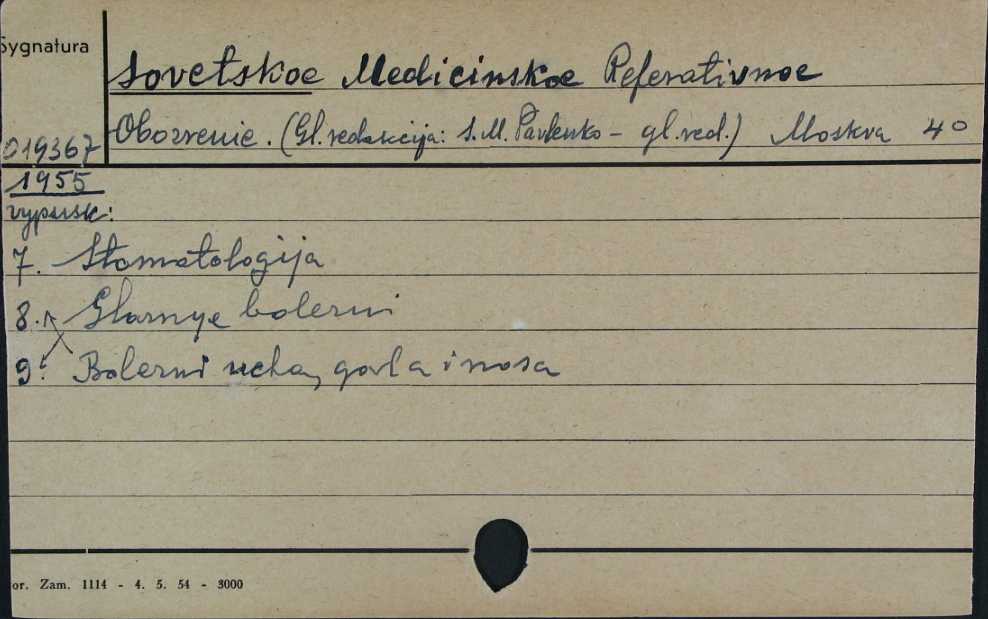 Sygnatura
Sovetskoe Medicinskoe Referativnoe
Obozrenie. (Gl. redakcija: S. M. Pavlenko - gl. red.) Moskva 4°
019367
1955
vypusk:
7. Stomatologija
8. Glaznye bolezni
9. Bolezni ucha, gorla i nosa
or. Zam. 1114 - 4. 5. 54 - 3000